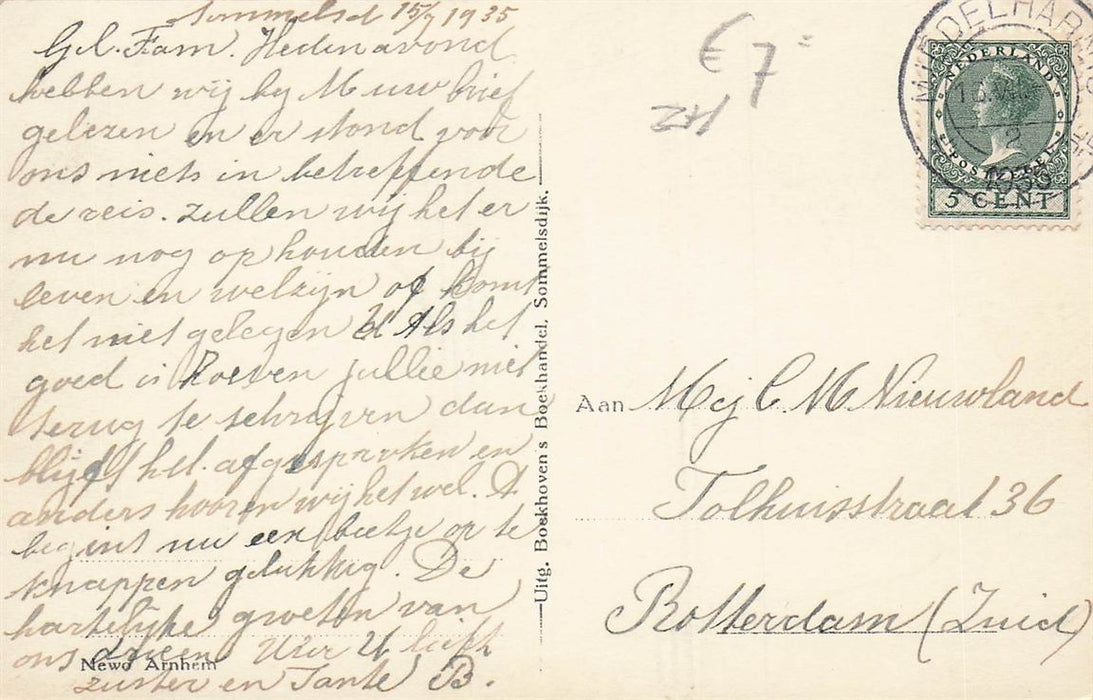 Sommelsd 15/7 1935
Gel. Fam. Heden avond
hebben wij by M uw brief
gelezen en er stond voor
ons niets in betreffende
de reis. zullen wij het er
nu nog op houden bij
leven en welzijn of komt
het niet gelegen Als het
goed is hoeven jullie niet
terug te schrijven dan
blijft het. afgesproken en
anders hooren wij het wel. A
begint nu een beetje op te
knappen gelukkig. De
hartelijke groeten van
ons drieen Uwer U liefh
zuster en Tante B.
Newo Arnhem
Uitg. Boekhoven's Boekhandel, Sommelsdijk.
€ 7=
ZH
MIDDELHARNIS
1935
NEDERLAND
POSTZEGEL
5 CENT
Aan Mej C M Nieuwland
Tolhuisstraat 36
Rotterdam (Zuid)